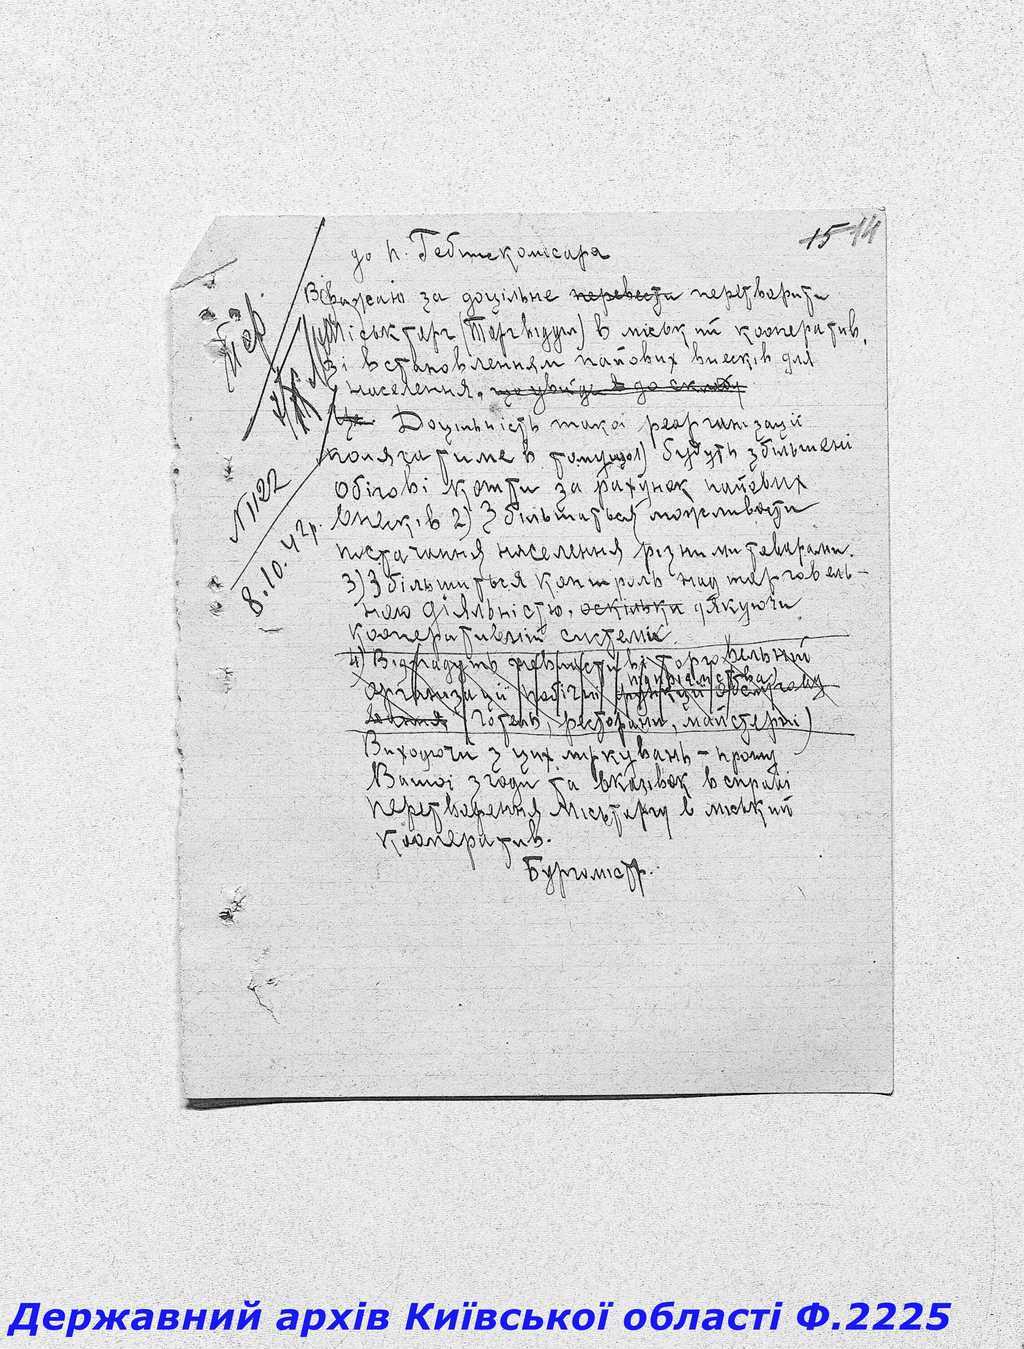 15 14
до п. Гебітскомісара
Вважаю за доцільне перевести перетворити
Міськторг (Торгвідділ) в міський кооператив,
зі встановленням пайових внесків для
населення, що увійде в до складу
Це. Доцільність такої реорганізації
полягатиме в тому, що 1) будуть збільшені
обігові кошти за рахунок пайових
внесків 2) Збільшаться можливости
постачання населення різними товарами.
3) Збільшиться контроль над торговель-
ною діяльністю, оскільки дякуючи
кооперативній системі.
4) Відпадуть в торговельній
організації побічні підприємства
функції обслуговування
(готель, ресторани, майстерні)
Виходячи з цих міркувань – прошу
Вашої згоди та вказівок в справі
перетворення Міськторгу в міський
кооператив.
Бургомістр.
N 1122
8.10.42р.
Державний архів Київської області Ф.2225